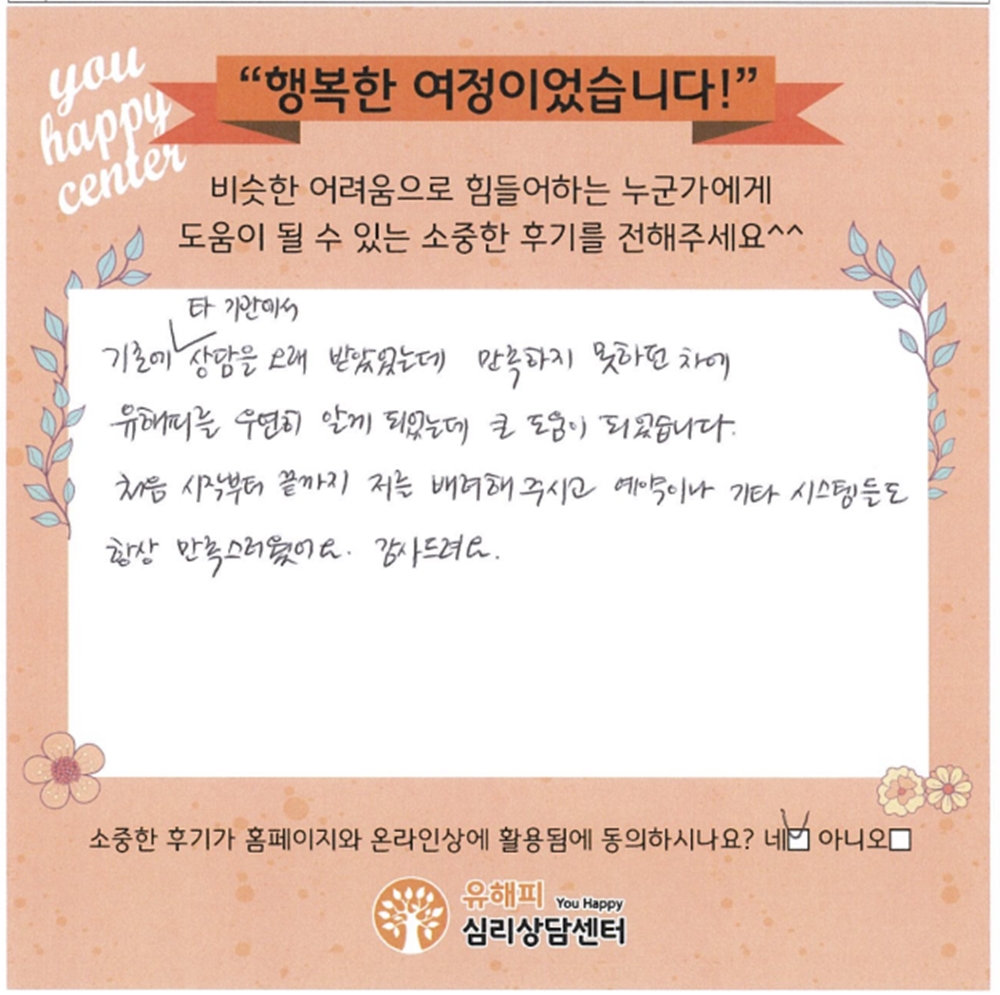 you
happy
center
“행복한 여정이었습니다!”
비슷한 어려움으로 힘들어하는 누군가에게
도움이 될 수 있는 소중한 후기를 전해주세요^^
타 기관에서
기존에 상담을 오래 받았었는데 만족하지 못하던 차에
유해피를 우연히 알게 되었는데 큰 도움이 되었습니다.
처음 시작부터 끝까지 저를 배려해 주시고 예약이나 기타 시스템들도
항상 만족스러웠어요. 감사드려요.
소중한 후기가 홈페이지와 온라인상에 활용됨에 동의하시나요? 네 아니오
유해피 You Happy
심리상담센터